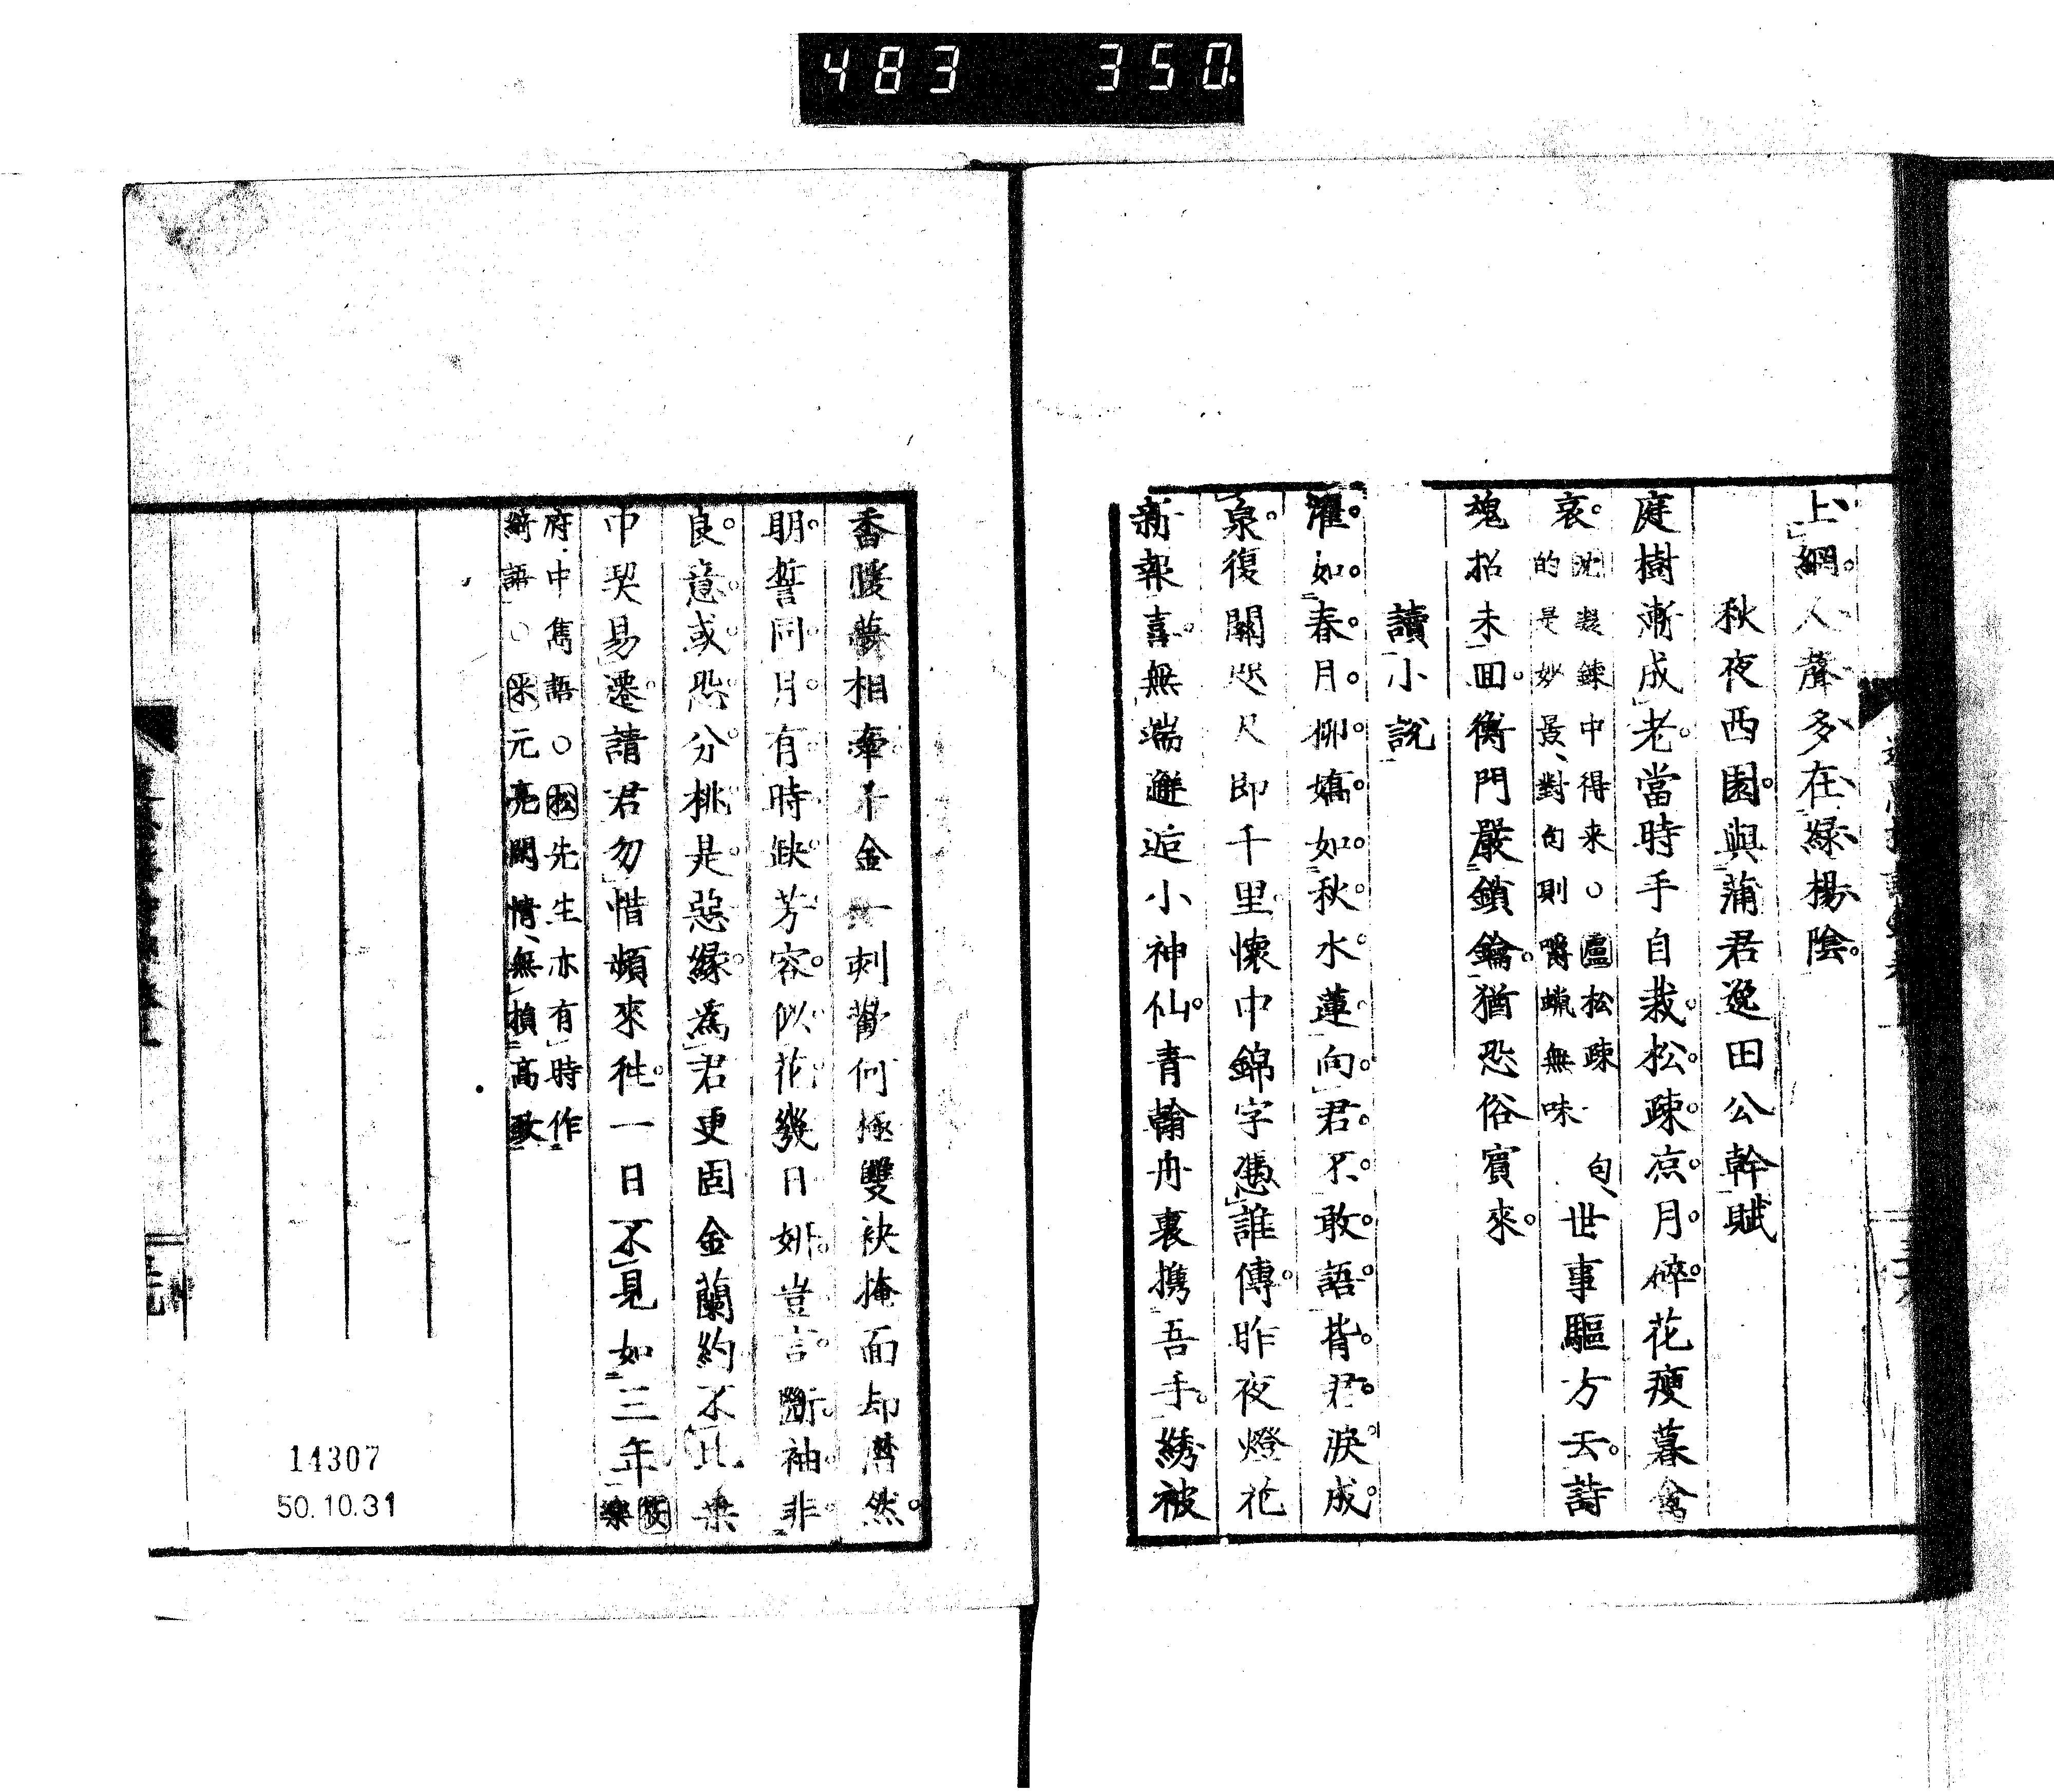 483 350
上網。人聲多在綠楊陰。
秋夜西園。與蒲君逸田公幹賦
庭樹漸成老。當時手自栽。松疎凉月碎。花瘦暮禽
哀。沈凝鍊中得来○盧松疎句、
的是妙景、對句則嚼蠟無味
世事驅方去。詩
魂招未回。衡門嚴鎖鑰。猶恐俗賓來。
讀小說
濯。如。春。月。柳。嬌。如。秋。水。蓮。向。君。不敢。語。背。君。淚成。
泉。復關咫尺即千里。懷中錦字憑誰傳。昨夜燈花
新報喜。無端邂逅小神仙。青翰舟裏携吾手。綉被
香腰夢相牽。千金一刺歡何極雙袂掩面却潸然。
明。誓同月。有時缺。芳容。似花幾日妍。豈言。斷袖。非
良。意。或恐。分桃是。惡緣。為君更固金蘭約不比桑
中契易遷。請君勿惜頻來往。一日不見如三年
府中雋語○松先生亦有時作
綺語○米元亮閑情、無損高致
14307
50.10.31